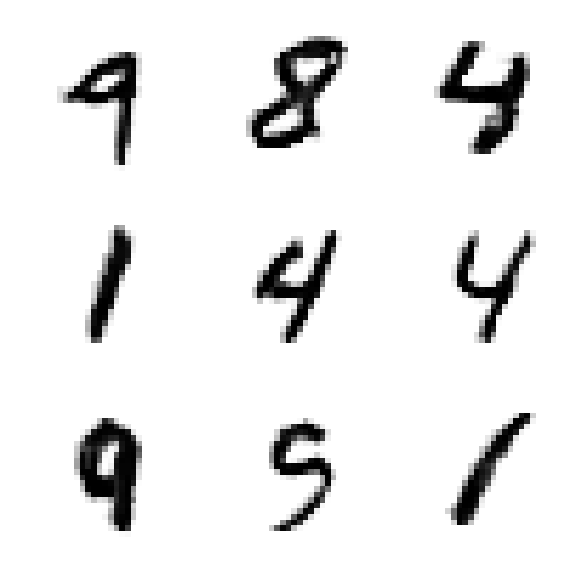 9 8 4
1 4 4
9 5 1